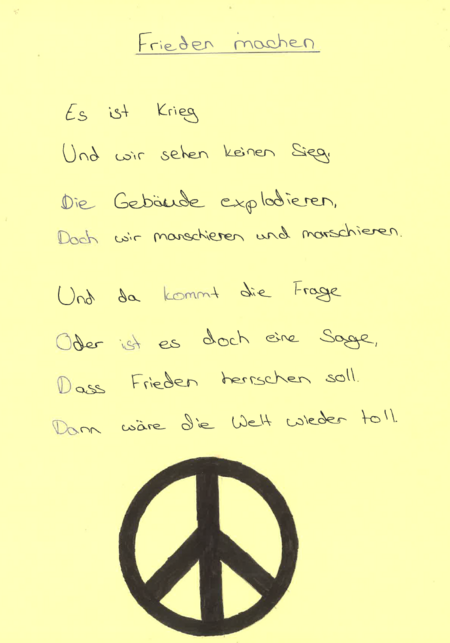 Frieden machen
Es ist Krieg
Und wir sehen keinen Sieg.
Die Gebäude explodieren,
Doch wir marschieren und marschieren.
Und da kommt die Frage
Oder ist es doch eine Sage,
Dass Frieden herrschen soll.
Dann wäre die Welt wieder toll.